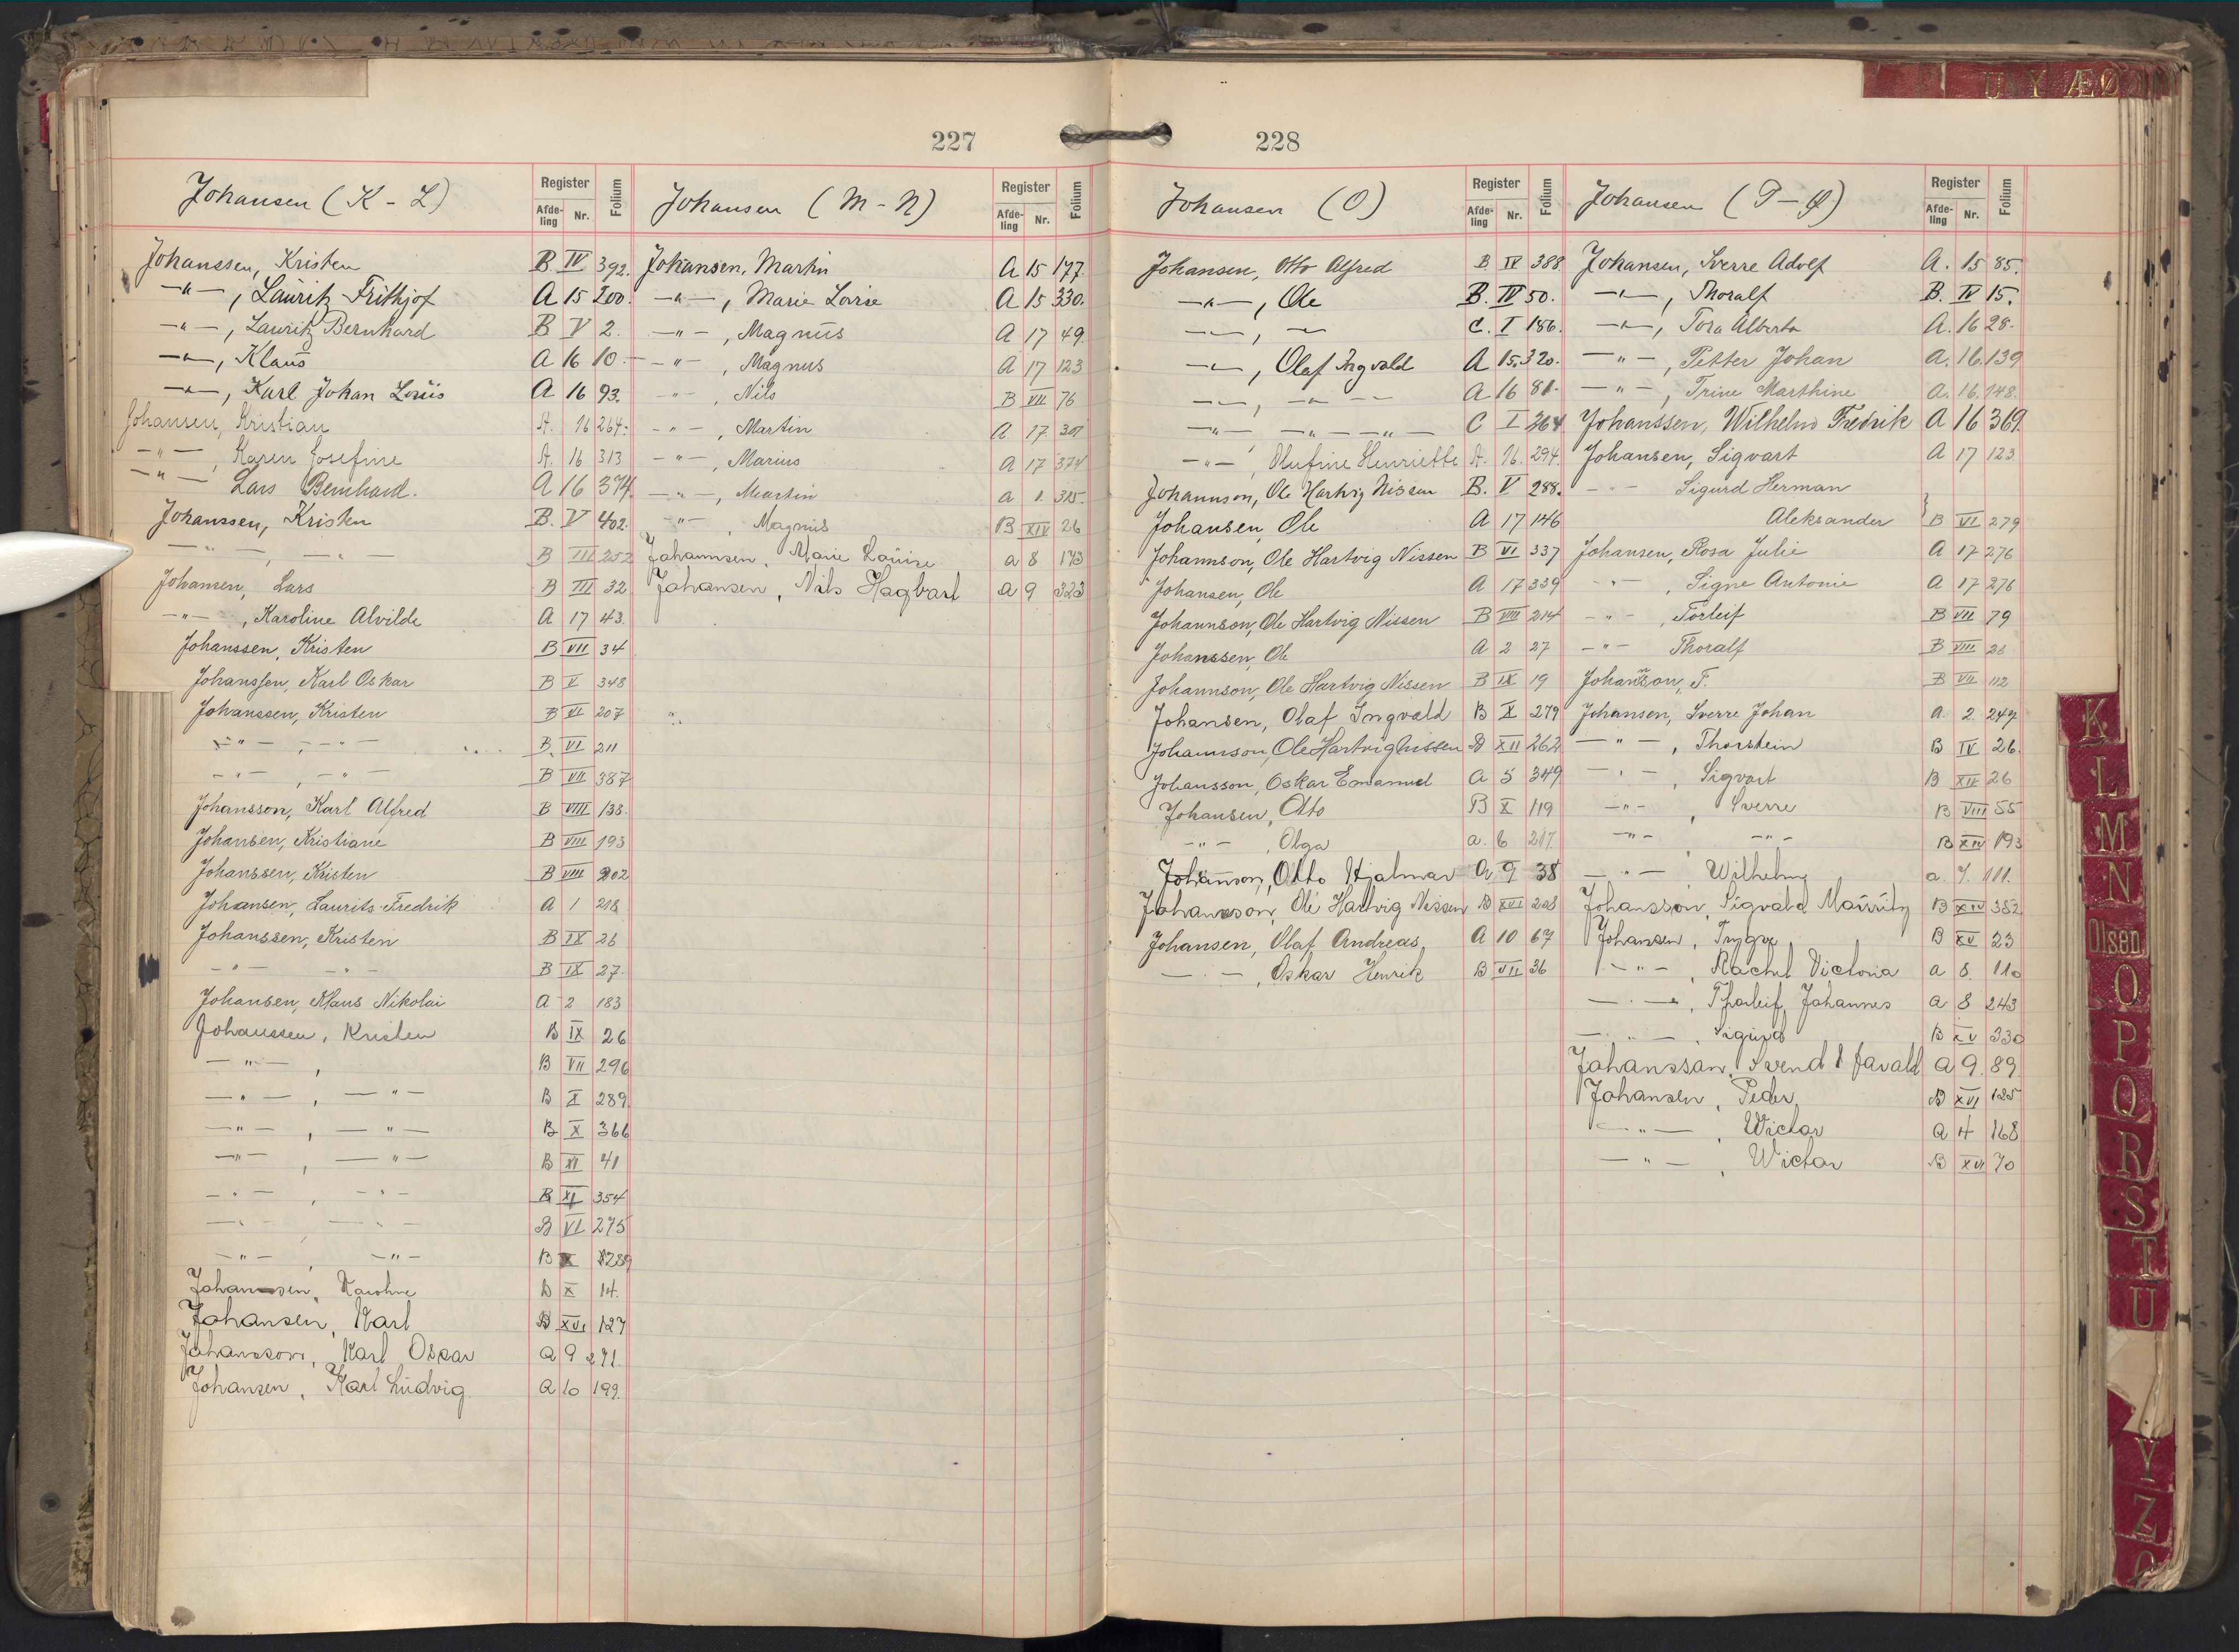 U Y Æ Ø
227
Johansen (K - L)
Register
Afde-ling Nr. Folium
Johanssen, Kristen B IV 392.
-"-, Lauritz Frithjof A 15 200.
-"-, Lauritz Bernhard B V 2.
-"-, Klaus A 16 10.
-"-, Karl Johan Louis A 16 93.
Johansen, Kristian A. 16 264.
-"-, Karen Josefine A. 16 313
-"- Lars Bernhard. A 16 374
Johanssen, Kristen B. V 402.
-"-, -"- B III 252
Johansen, Lars B III 32
-"-, Karoline Alvilde A 17 43.
Johanssen, Kristen B VII 34
Johanssen, Karl Oskar B V 348
Johanssen, Kristen B VI 207
-"-, -"- B. VI 211
-"-, -"- B VII 387
Johansson, Karl Alfred B VIII 138.
Johansen, Kristiane B VIII 193
Johanssen, Kristen B VIII 202
Johansen, Laurits Fredrik A 1 218
Johanssen, Kristen B IX 26
-"- -"- B IX 27.
Johansen, Klaus Nikolai A 2 183
Johanssen, Kristen B IX 26
-"-, B VII 296
-"-, -"- B X 289.
-"-, -"- B X 366
-"-, -"- B XI 41
-"-, -"- B XI 354
-"- -"- B VI 275
-"-, -"- B X 289
Johansen, Karoline B X 14.
Johansen, Karl B XVI 127
Johansson, Karl Oskar A 9 291.
Johansen, Karl Ludvig A 10 199.
Johansen (M - N)
Register
Afde-ling Nr. Folium
Johansen, Martin A 15 177.
-"-, Marie Lovise A 15 330.
-"-, Magnus A 17 49.
-"-, Magnus A 17 123
-"-, Nils B VII 76
-"-, Martin A 17 301
-"-, Marius A 17 374
-"-, Martin A 1. 315.
-"-, Magnus B XIV 26
Johannsen, Marie Louise A 8 173
Johansen, Nils Hagbart A 9 323
228
Johansen (O)
Register
Afde-ling Nr. Folium
Johansen, Otto Alfred B IV 388
-"-, Ole B. IV 50.
-"-, -"- C. I 186.
-"-, Olaf Ingvald A 15. 320.
-"-, -"- -"- A 16 81.
-"- -"- -"- C I 264
-"-, Olufine Henriette A. 16. 294.
Johannson, Ole Hartvig Nissen B. V 288.
Johansen, Ole A 17 146
Johannson, Ole Hartvig Nissen B VI 337
Johansen, Ole A 17 339
Johannson, Ole Hartvig Nissen B VIII 214
Johanssen, Ole A 2 27
Johannson, Ole Hartvig Nissen B IX 19
Johansen, Olaf Ingvald B X 279
Johannson, Ole Hartvig Nissen B XII 262
Johansson, Oskar Emanuel A 5 349
Johansen, Otto B X 119
-"-, Olga a. 6 217.
Johanson, Otto Hjalmar A 9 38
Johansson, Ole Hartvig Nissen B XVI 208
Johansen, Olaf Andreas, A 10 67
-"-, Oskar Henrik B VII 36
Johansen (P - Ø)
Register
Afde-ling Nr. Folium
Johansen, Sverre Adolf A. 15 85.
-"-, Thoralf B. IV 15.
-"-, Tora Alberta A. 16 28.
-"-, Petter Johan A. 16. 139
-"-, Trine Marthine A. 16. 148.
Johanssen, Wilhelm Fredrik A 16 369.
Johansen, Sigvart A 17 123
-"- Sigurd Herman
Aleksander } B VI 279
Johansen, Rosa Julie A 17 276
-"-, Signe Antonie A 17 276
-"-, Torleif B VII 79
-"- Thoralf B VIII 28
Johanson, T. B VII 112
Johansen, Sverre Johan A. 2. 249
-"-, Thorstein B IV 26.
-"-, Sigvart B XII 26
-"-, Sverre B VIII 55
-"- -"- B XIV 193
-"-, Wilhelm a. 7. 111.
Johansson, Sigvald Mauritz B XIV 352
Johansen, Trygve B XV 23
-"-, Rachel Victoria a 8. 110
-"-, Thorleif Johannes a 8 243
-"-, Sigurd B XV 330
Johansson, Svend A 9. 89.
Johansen, Peder, B XVI 125
-"-, Victor A 4 168
-"-, Victor B XVI 70
K
L
M
N
Olsen
O
P
Q
R
S
T
U
Y
Z